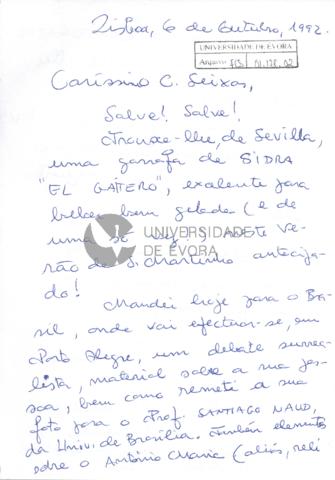 Lisboa, 6 de Outubro, 1992.
UNIVERSIDADE DE EVORA
Arquivo FCS 01.178.02
Caríssimo C. Seixas,
Salve! Salve!
Trouxe-lhe, de Sevilla,
uma garrafa de SIDRA
"EL GATERO", exalente para
beber bem gelada (e de
uma só vez), neste Ve-
rão de S. Martinho antecipa-
do!
UNIVERSIDADE
DE ÉVORA
Mandei hoje para o Bra-
sil, onde vai efectuar-se, em
Porto Alegre, um debate surrea-
lista, material sobre a sua pes-
soa, bem como remeti a sua
foto para o Prof. SANTIAGO NAUD,
da Univ. de Brasília. Também elementos
sobre o António Maria (aliás, reli